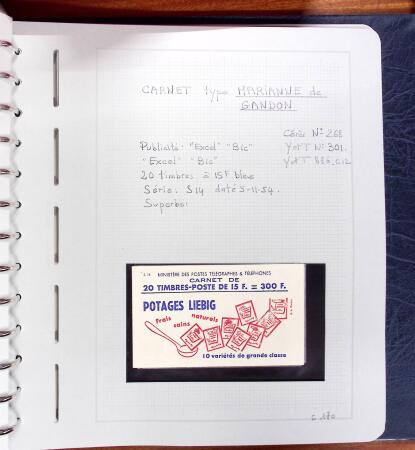 CARNET type MARIANNE de
GANDON
Cérès N° 268
Publicité: "Excel" "Bic" YvtT N° 301.
"Excel" "Bic" YvtT 886.C12
20 timbres à 15F bleu
Série: S14 daté 5-11-54.
Superbe:
S. 14 MINISTÈRE DES POSTES TÉLÉGRAPHES & TÉLÉPHONES
CARNET DE
20 TIMBRES-POSTE DE 15 F. = 300 F.
POTAGES LIEBIG
frais
sains
naturels
10 variétés de grande classe